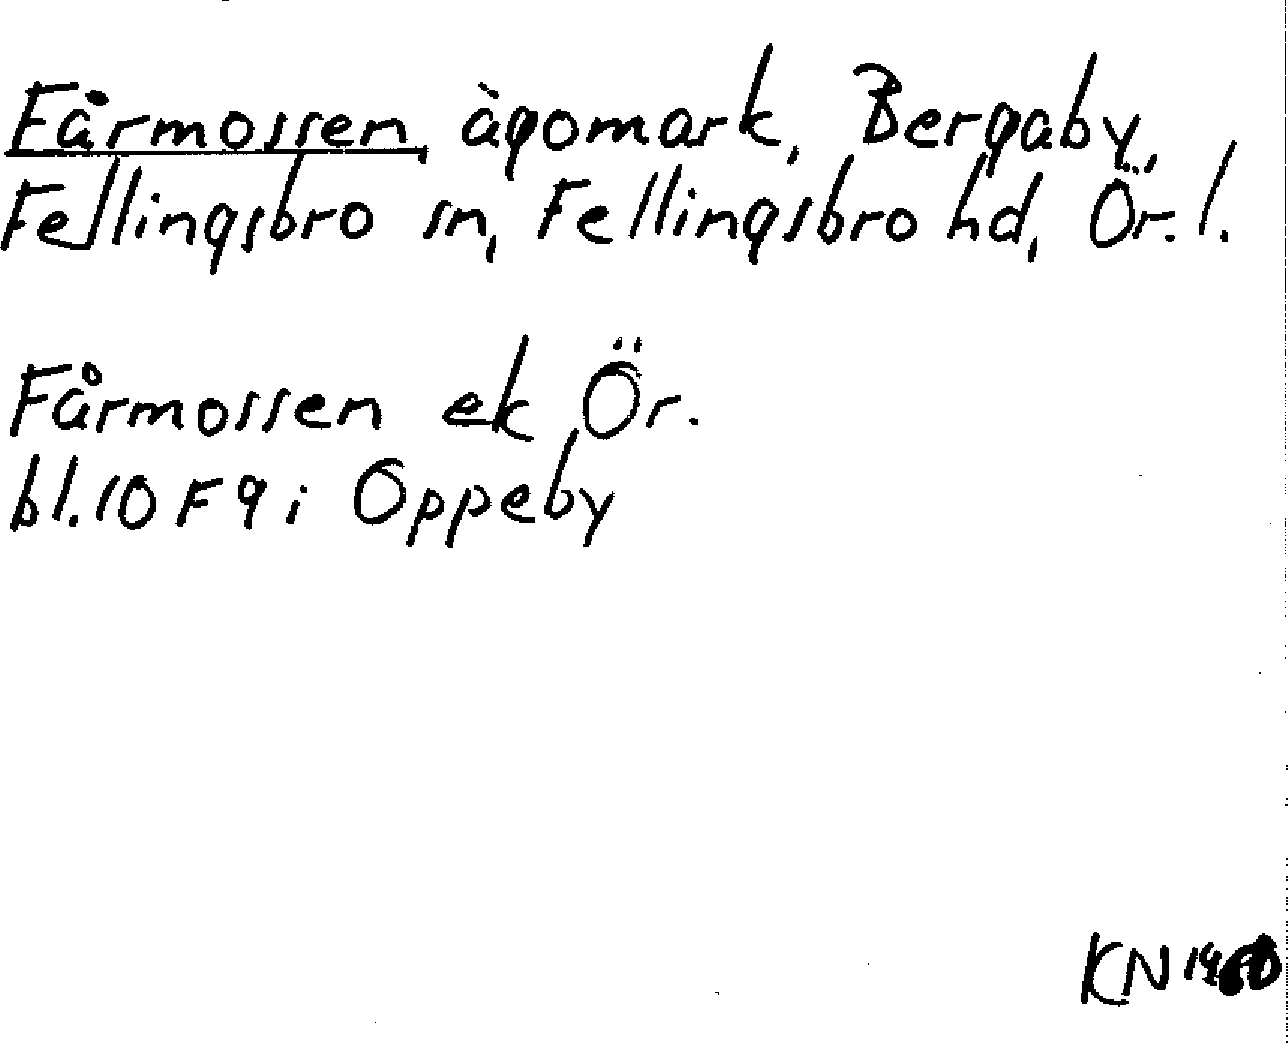 Fårmossen, ägomark, Bergaby,
Fellingsbro sn, Fellingsbro hd, Ör. l.
Fårmossen ek Ör.
bl. 10 F 9 i Oppeby
KN